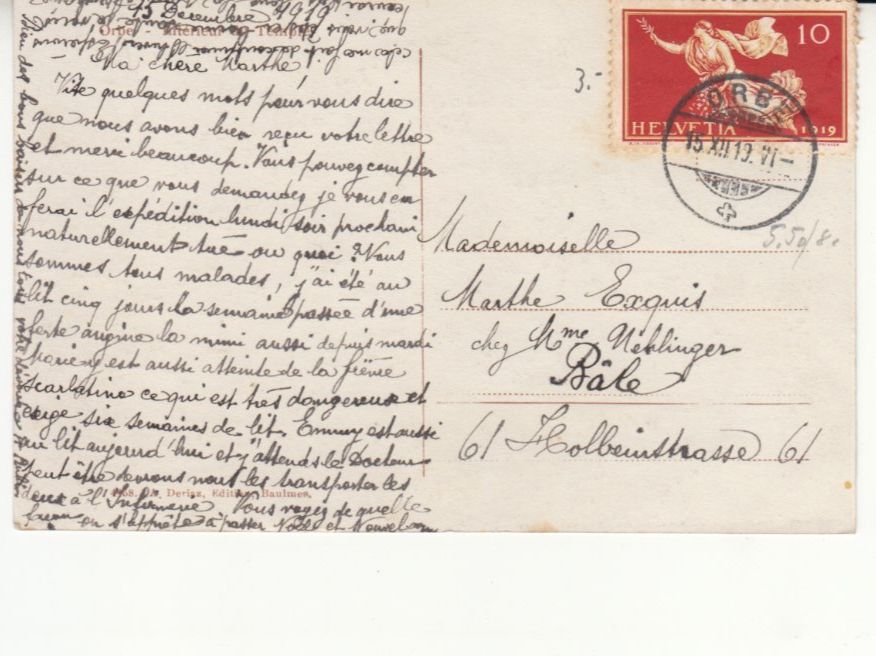 15 Décembre 1919
Orbe - Intérieur du Temple
Ma chère Marthe
Vite quelques mots pour vous dire
que nous avons bien reçu votre lettre
et merci beaucoup. Vous pouvez compter
sur ce que vous demandez je vous en
ferai l'expédition lundi soir prochain
naturellement tué ou quoi? Nous
sommes tous malades, j'ai été au
lit cinq jours la semaine passée d'une
forte angine la mimi aussi depuis mardi
est aussi atteinte de la fièvre
Scarlatine ce qui est très dangereuse et
exige six semaines de lit. Emmy est aussi
au lit aujourd'hui et j'attends le Docteur
peut être devrons nous les transporter les
deux à l'Infirmerie. Vous voyez de quelle
façon on s'apprête à passer Noël et Nouvel an
Deriaz, Edition, Baulmes.
bons baisers de nous tous votre
3.-
HELVETIA
10
1919
ORBE
15.XII.19. VI-
5.50/8.
Mademoiselle
Marthe Exquis
chez Mme Nehlinger
Bâle
61 Holbeinstrasse 61